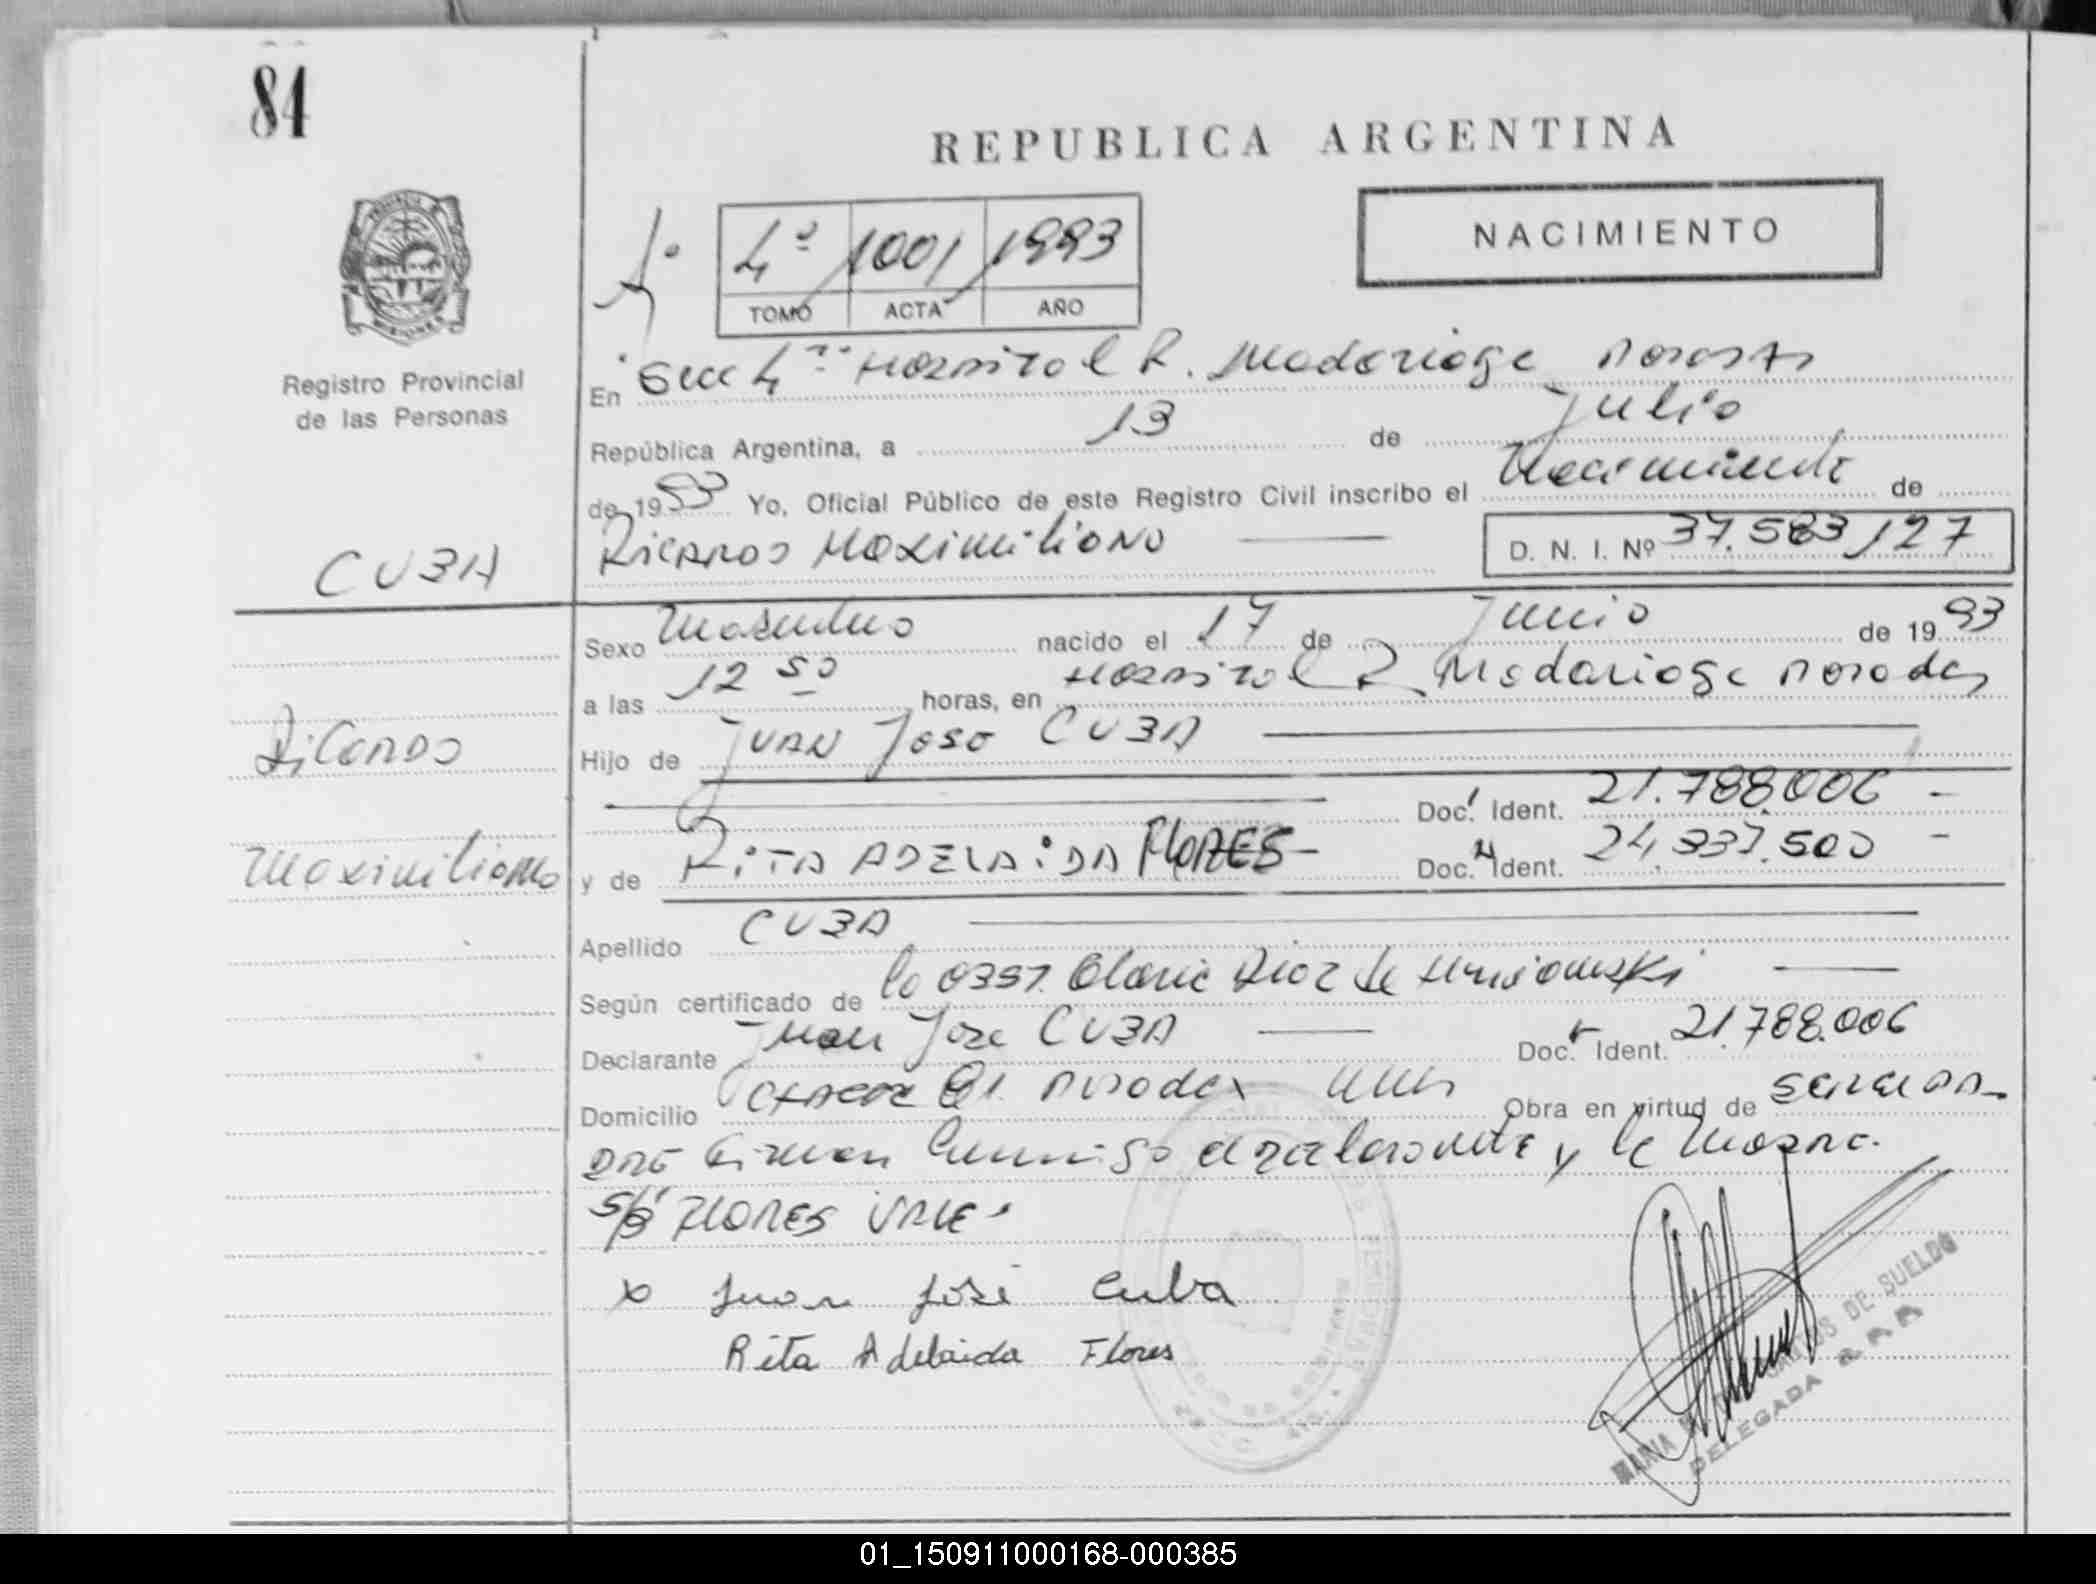 84
REPUBLICA ARGENTINA
PROVINCIA DE MISIONES
Registro Provincial
de las Personas
4º 1001 1993
TOMO ACTA AÑO
NACIMIENTO
En Secc 4ª Hospital R. Madariaga Posadas
República Argentina, a 13 de Julio
de 1993 Yo, Oficial Público de este Registro Civil inscribo el Nacimiento de
Ricardo Maximiliano D. N. I. Nº 37.583.127
CUBA
Ricardo
Maximiliano
Sexo Masculino nacido el 17 de Junio de 1993
a las 12 50 horas, en Hospital R. Madariaga Posadas
Hijo de Juan Jose CUBA
Doc. Ident. 21.788.006
y de RITA ADELAIDA FLORES Doc. Ident. 24.337.500
Apellido CUBA
Según certificado de la Obst. Diaz de
Declarante Juan Jose CUBA Doc. Ident. 21.788.006
Domicilio Posadas Obra en virtud de
Firman Conmigo el declarante y la Madre.
S/B FLORES VALE
x Juan José Cuba
Rita Adelaida Flores
DE SUELDO
DELEGADA R.P.P.
01_150911000168-000385